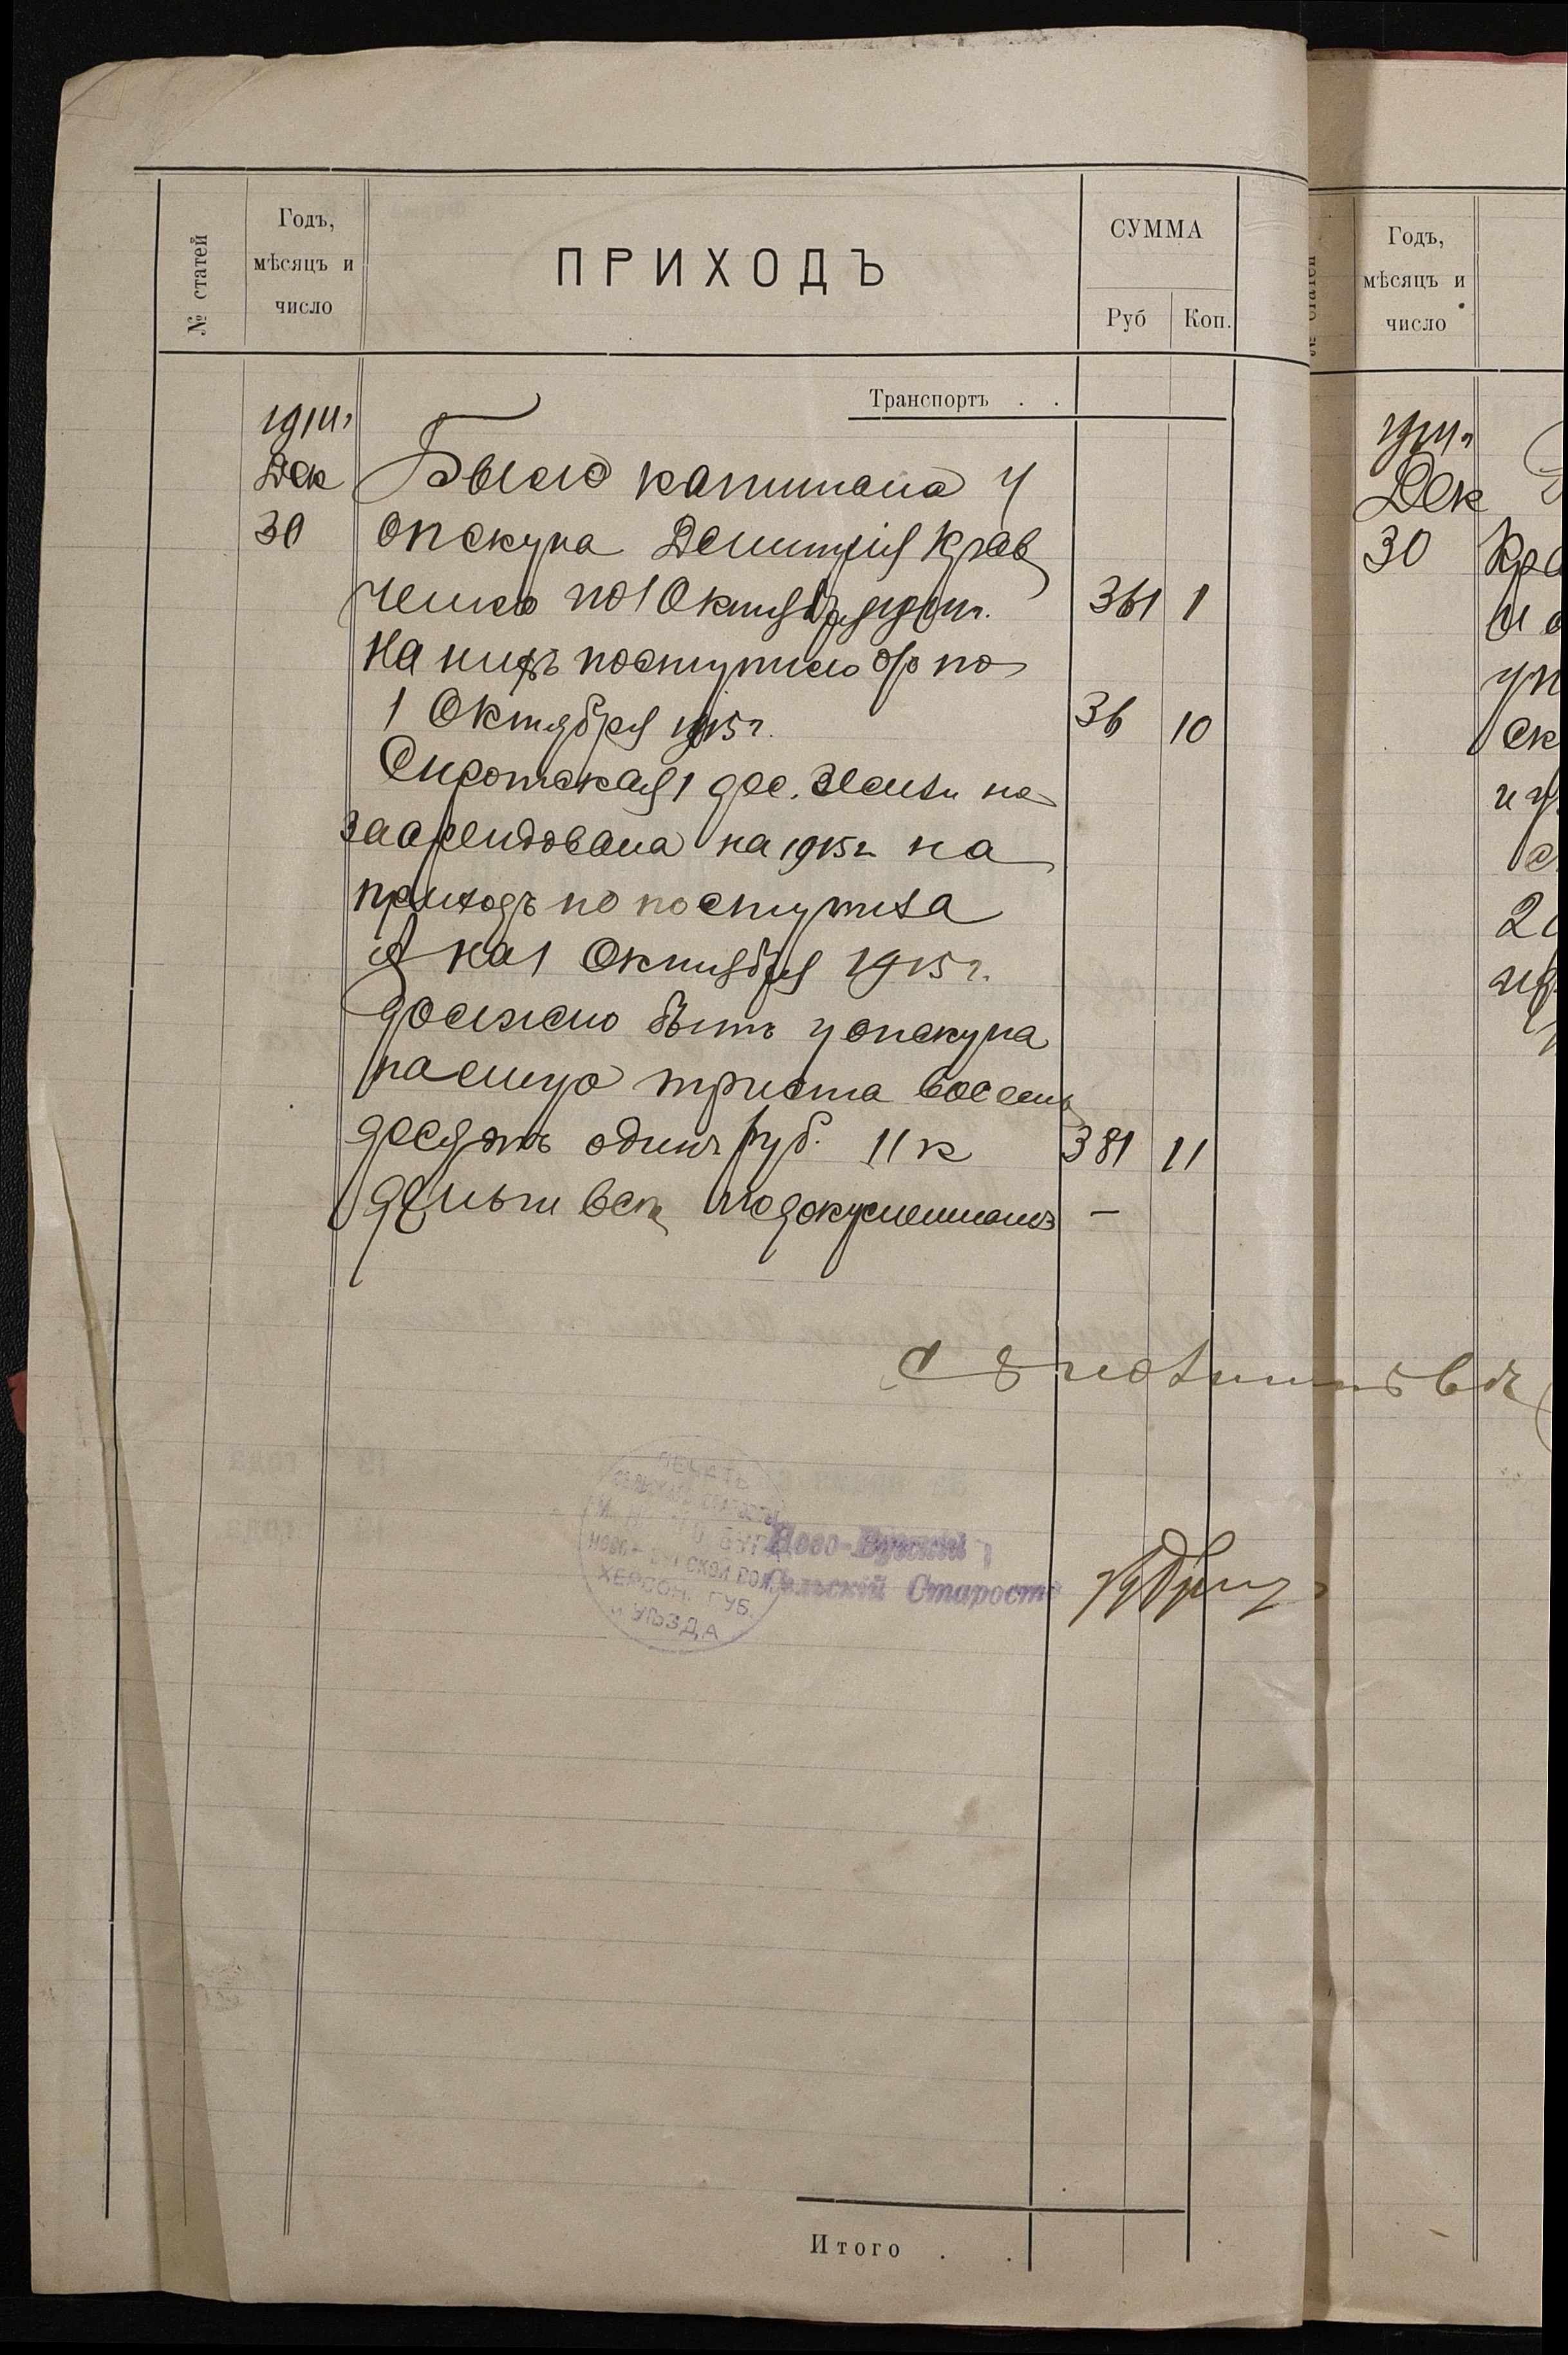 № статей
Годъ,
мѣсяцъ и
число
ПРИХОДЪ
СУММА
Руб
Коп.
Транспортъ . .
1914г
Дек
30
Было капитала у
опекуна Деминтрія Крав
ченко по 1 Октября 1914г. 361 1
На нихъ поступило % по
1 Октября 1915г. 36 10
Сиротская 1 дес. земли не
заарендована на 1915г на
приходъ не поступила
А на 1 Октября 1915г.
должно быть у опекуна
на лицо триста восемь
десятъ одинъ руб. 11 к 381 11
деньги все подокументамъ —
ПЕЧАТЬ
СЕЛЬСКАГО СТАРОСТЫ
НОВО-БУГСКОЙ ВОЛ.
ХЕРСОН. ГУБ.
И УѢЗДА
Ново-Бугскій
Сельскій Староста
Итого . .
№ статей
Годъ,
мѣсяцъ и
число
1914г
Дек
30